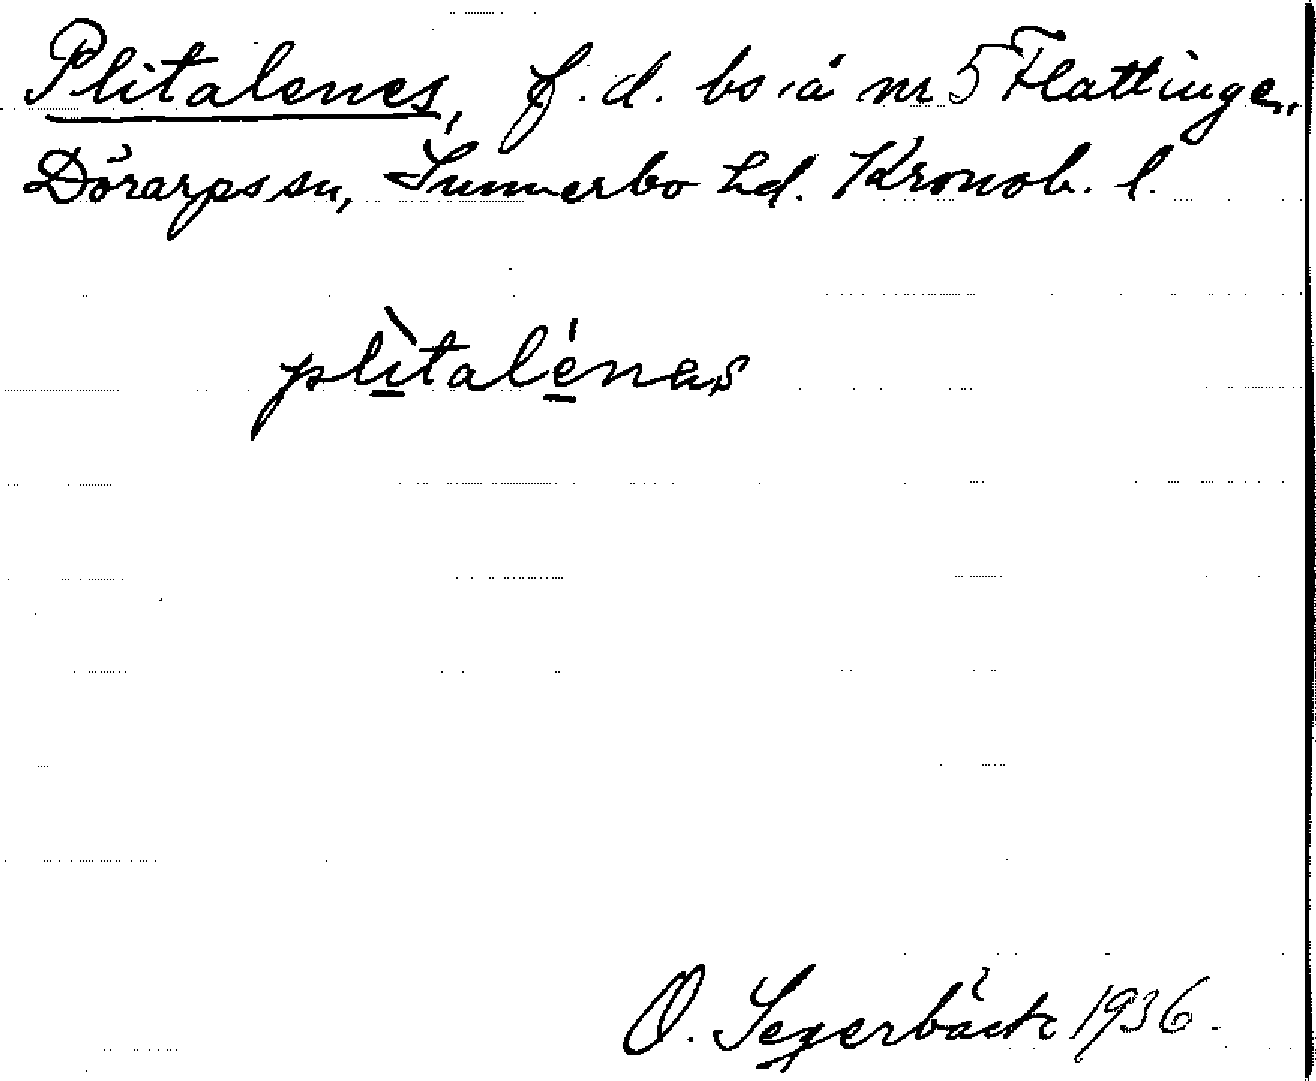 Plitalenes, f.d. bs å nr 5 Flattinge,
Dörarps sn, Sunnerbo hd. Kronob. l.
plìtalénas
O. Segerbäck 1936.